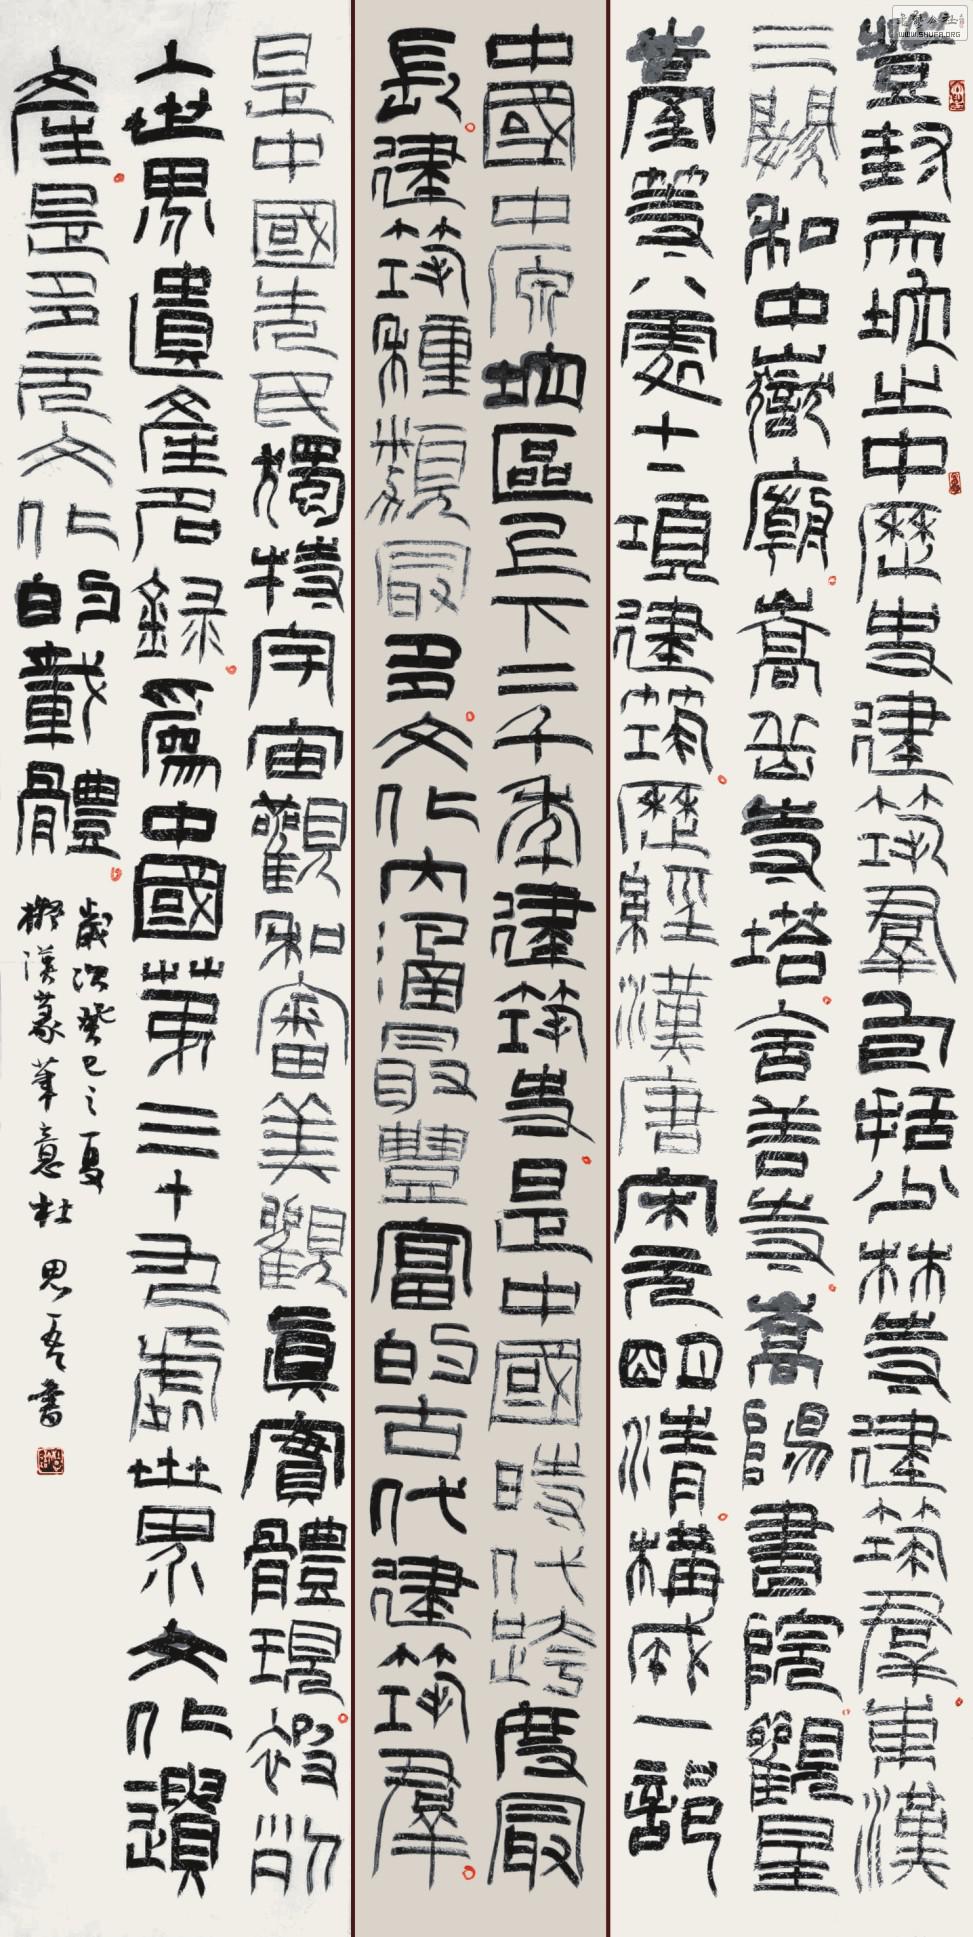 登封天地之中歷史建築群包括少林寺建築群東漢
三闕和中嶽廟嵩岳寺塔會善寺嵩陽書院觀星
臺等八處十二項建築歷經漢唐宋元明清構成一部
中國中原地區上下二千年建築史是中國時代跨度最
長建築種類最多文化內涵最豐富的古代建築群
是中國先民獨特宇宙觀和審美觀真實體現被列
入世界遺產名錄為中國第三十九處世界文化遺
產是多元文化的載體
歲次癸巳之夏
擬漢篆筆意杜思吾書
www.SHUFA.ORG